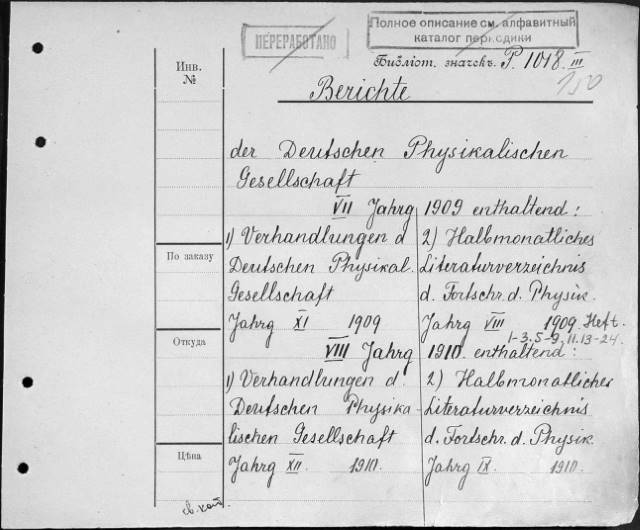 ПЕРЕРАБОТАНО
Полное описание см. алфавитный
каталог периодики
Библіот. значекъ P. 1018. III
150
Инв.
№
Berichte
der Deutschen Physikalischen
Gesellschaft
VII Jahrg 1909 enthaltend:
1) Verhandlungen d
Deutschen Physikal.
Gesellschaft
Jahrg XI 1909
2) Halbmonatliches
Literaturverzeichnis
d. Fortschr. d. Physik.
Jahrg VIII 1909. Heft.
1-3. 5-9, 11. 13-24.
VIII Jahrg 1910. enthaltend:
1) Verhandlungen d.
Deutschen Physika-
lischen Gesellschaft
Jahrg XII. 1910.
2) Halbmonatliches
Literaturverzeichnis
d. Fortschr. d. Physik.
Jahrg IX. 1910.
По заказу
Откуда
Цѣна